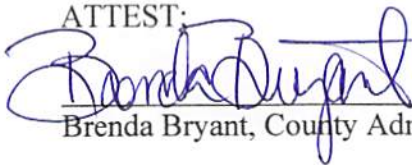 ATTEST:
Brenda Bryant
Brenda Bryant, County Adm